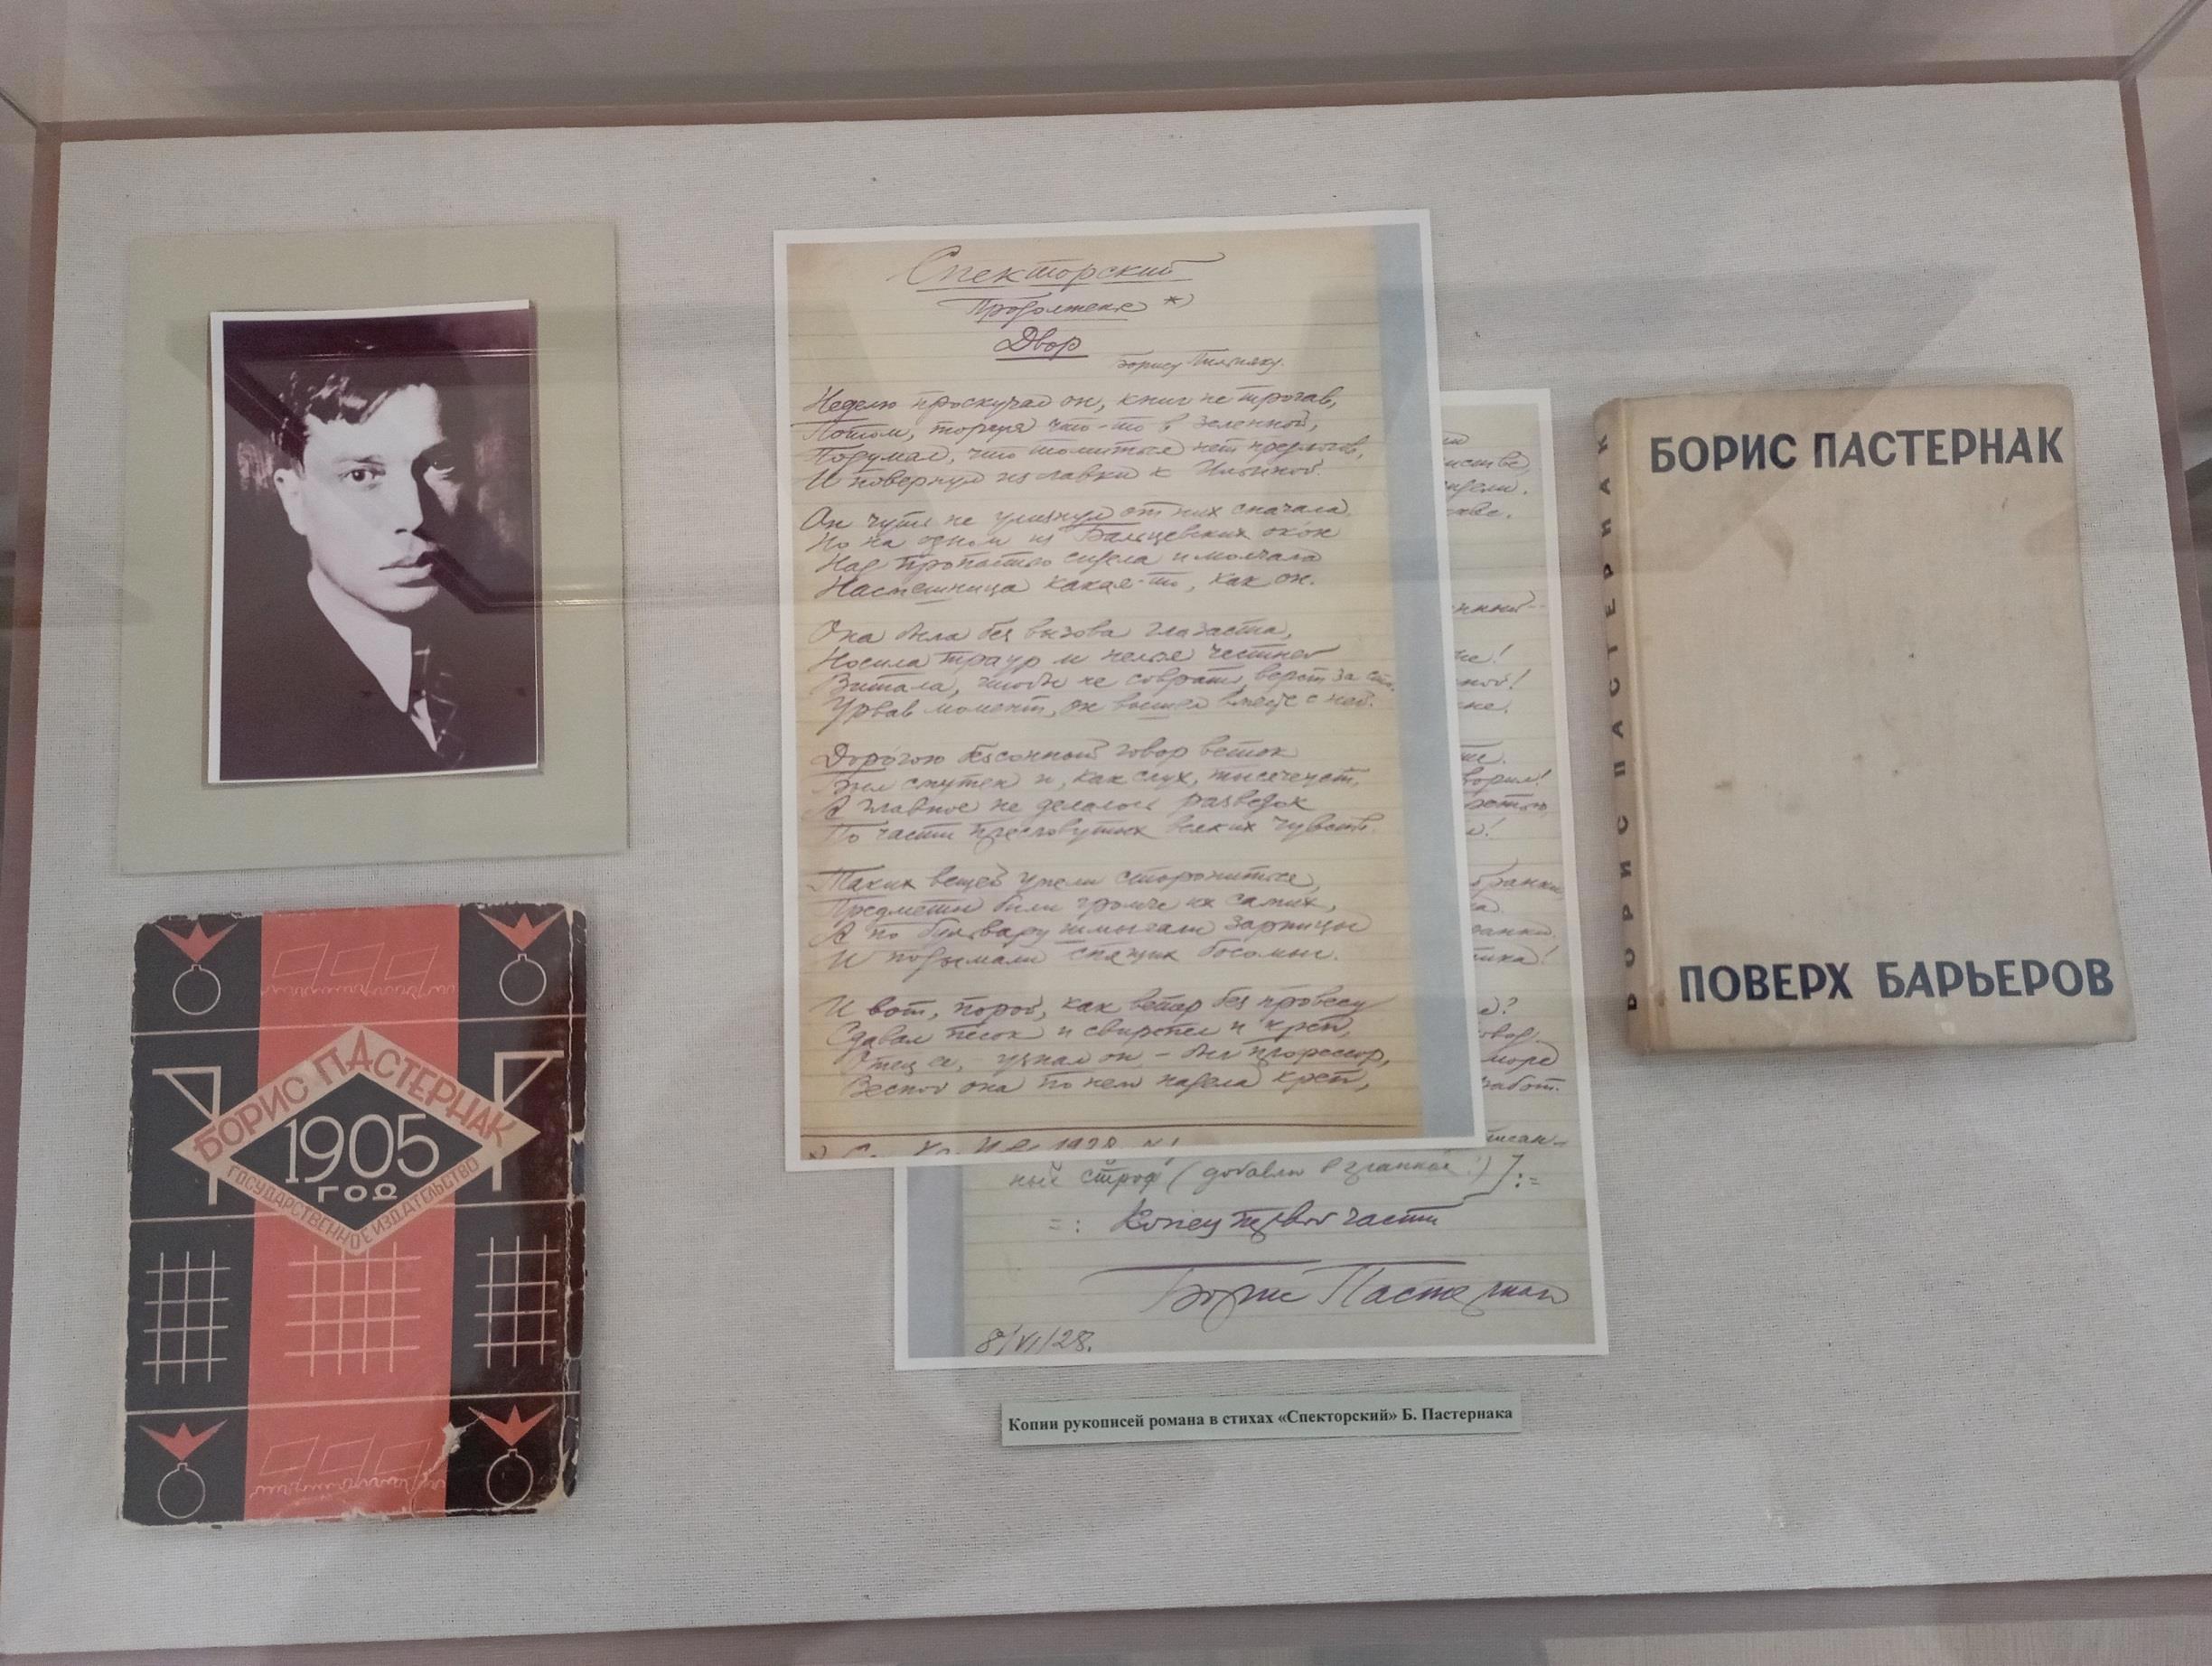 Спекторский
Продолжение *)
Двор
Борису Пильняку.
Неделю проскучал он, книг не трогав,
Потом, торгуя что-то в зеленной,
Подумал, что томиться нет предлогов,
И повернул из лавки к Ильиной.
Он чуть не улизнул от них сначала,
Но на одном из Бальцевских окон
Над пропастью сидела и молчала
Насмешница какая-то, как он.
Она была без вызова глазаста,
Носила траур и нельзя честней
Витала, чтобы не соврать, верст за сто.
Урвав момент, он вышел вместе с ней.
Дорогою бессонный говор веток
Был смутен и, как слух, тысячеуст,
А главное не делалось разведок
По части пресловутых всяких чувств.
Таких вещей умели сторониться,
Предметы были громче их самих,
А по бульвару шмыгали зарницы
И подымали спящих босомыг.
И вот, порой, как ветер без провесу
Сдавал песок и свирепел и креп,
Отец ее, - узнал он - был профессор,
Весной она по нем надела креп,
1928
ный строф (добавлю в гранках!)]:=
=: Конец первой части
Борис Пастернак
8/VI/28.
Копии рукописей романа в стихах «Спекторский» Б. Пастернака
БОРИС ПАСТЕРНАК
1905
ГОД
ГОСУДАРСТВЕННОЕ ИЗДАТЕЛЬСТВО
БОРИС ПАСТЕРНАК
БОРИС ПАСТЕРНАК
ПОВЕРХ БАРЬЕРОВ